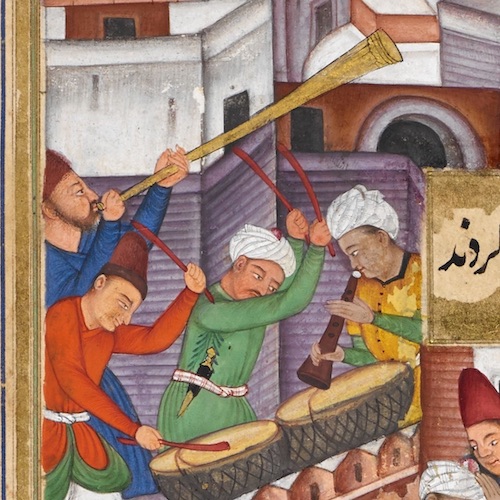 کردند